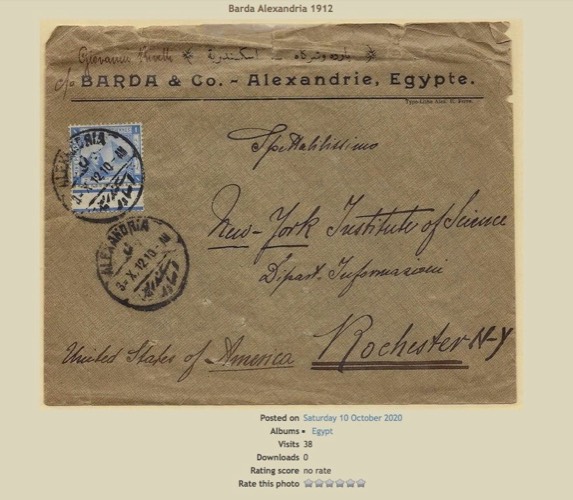 Barda Alexandria 1912
Giovanni
بارده وشركاه - اسكندرية
c/o BARDA & Co. - Alexandrie, Egypte.
ALEXANDRIA
3-X.12.10-AM
Spettabilissimo
New-York Institute of Science
ALEXANDRIA
3-X.12.10-AM
Dipart. Informazioni
Rochester N-Y
United States of America
Posted on Saturday 10 October 2020
Albums • Egypt
Visits 38
Downloads 0
Rating score no rate
Rate this photo